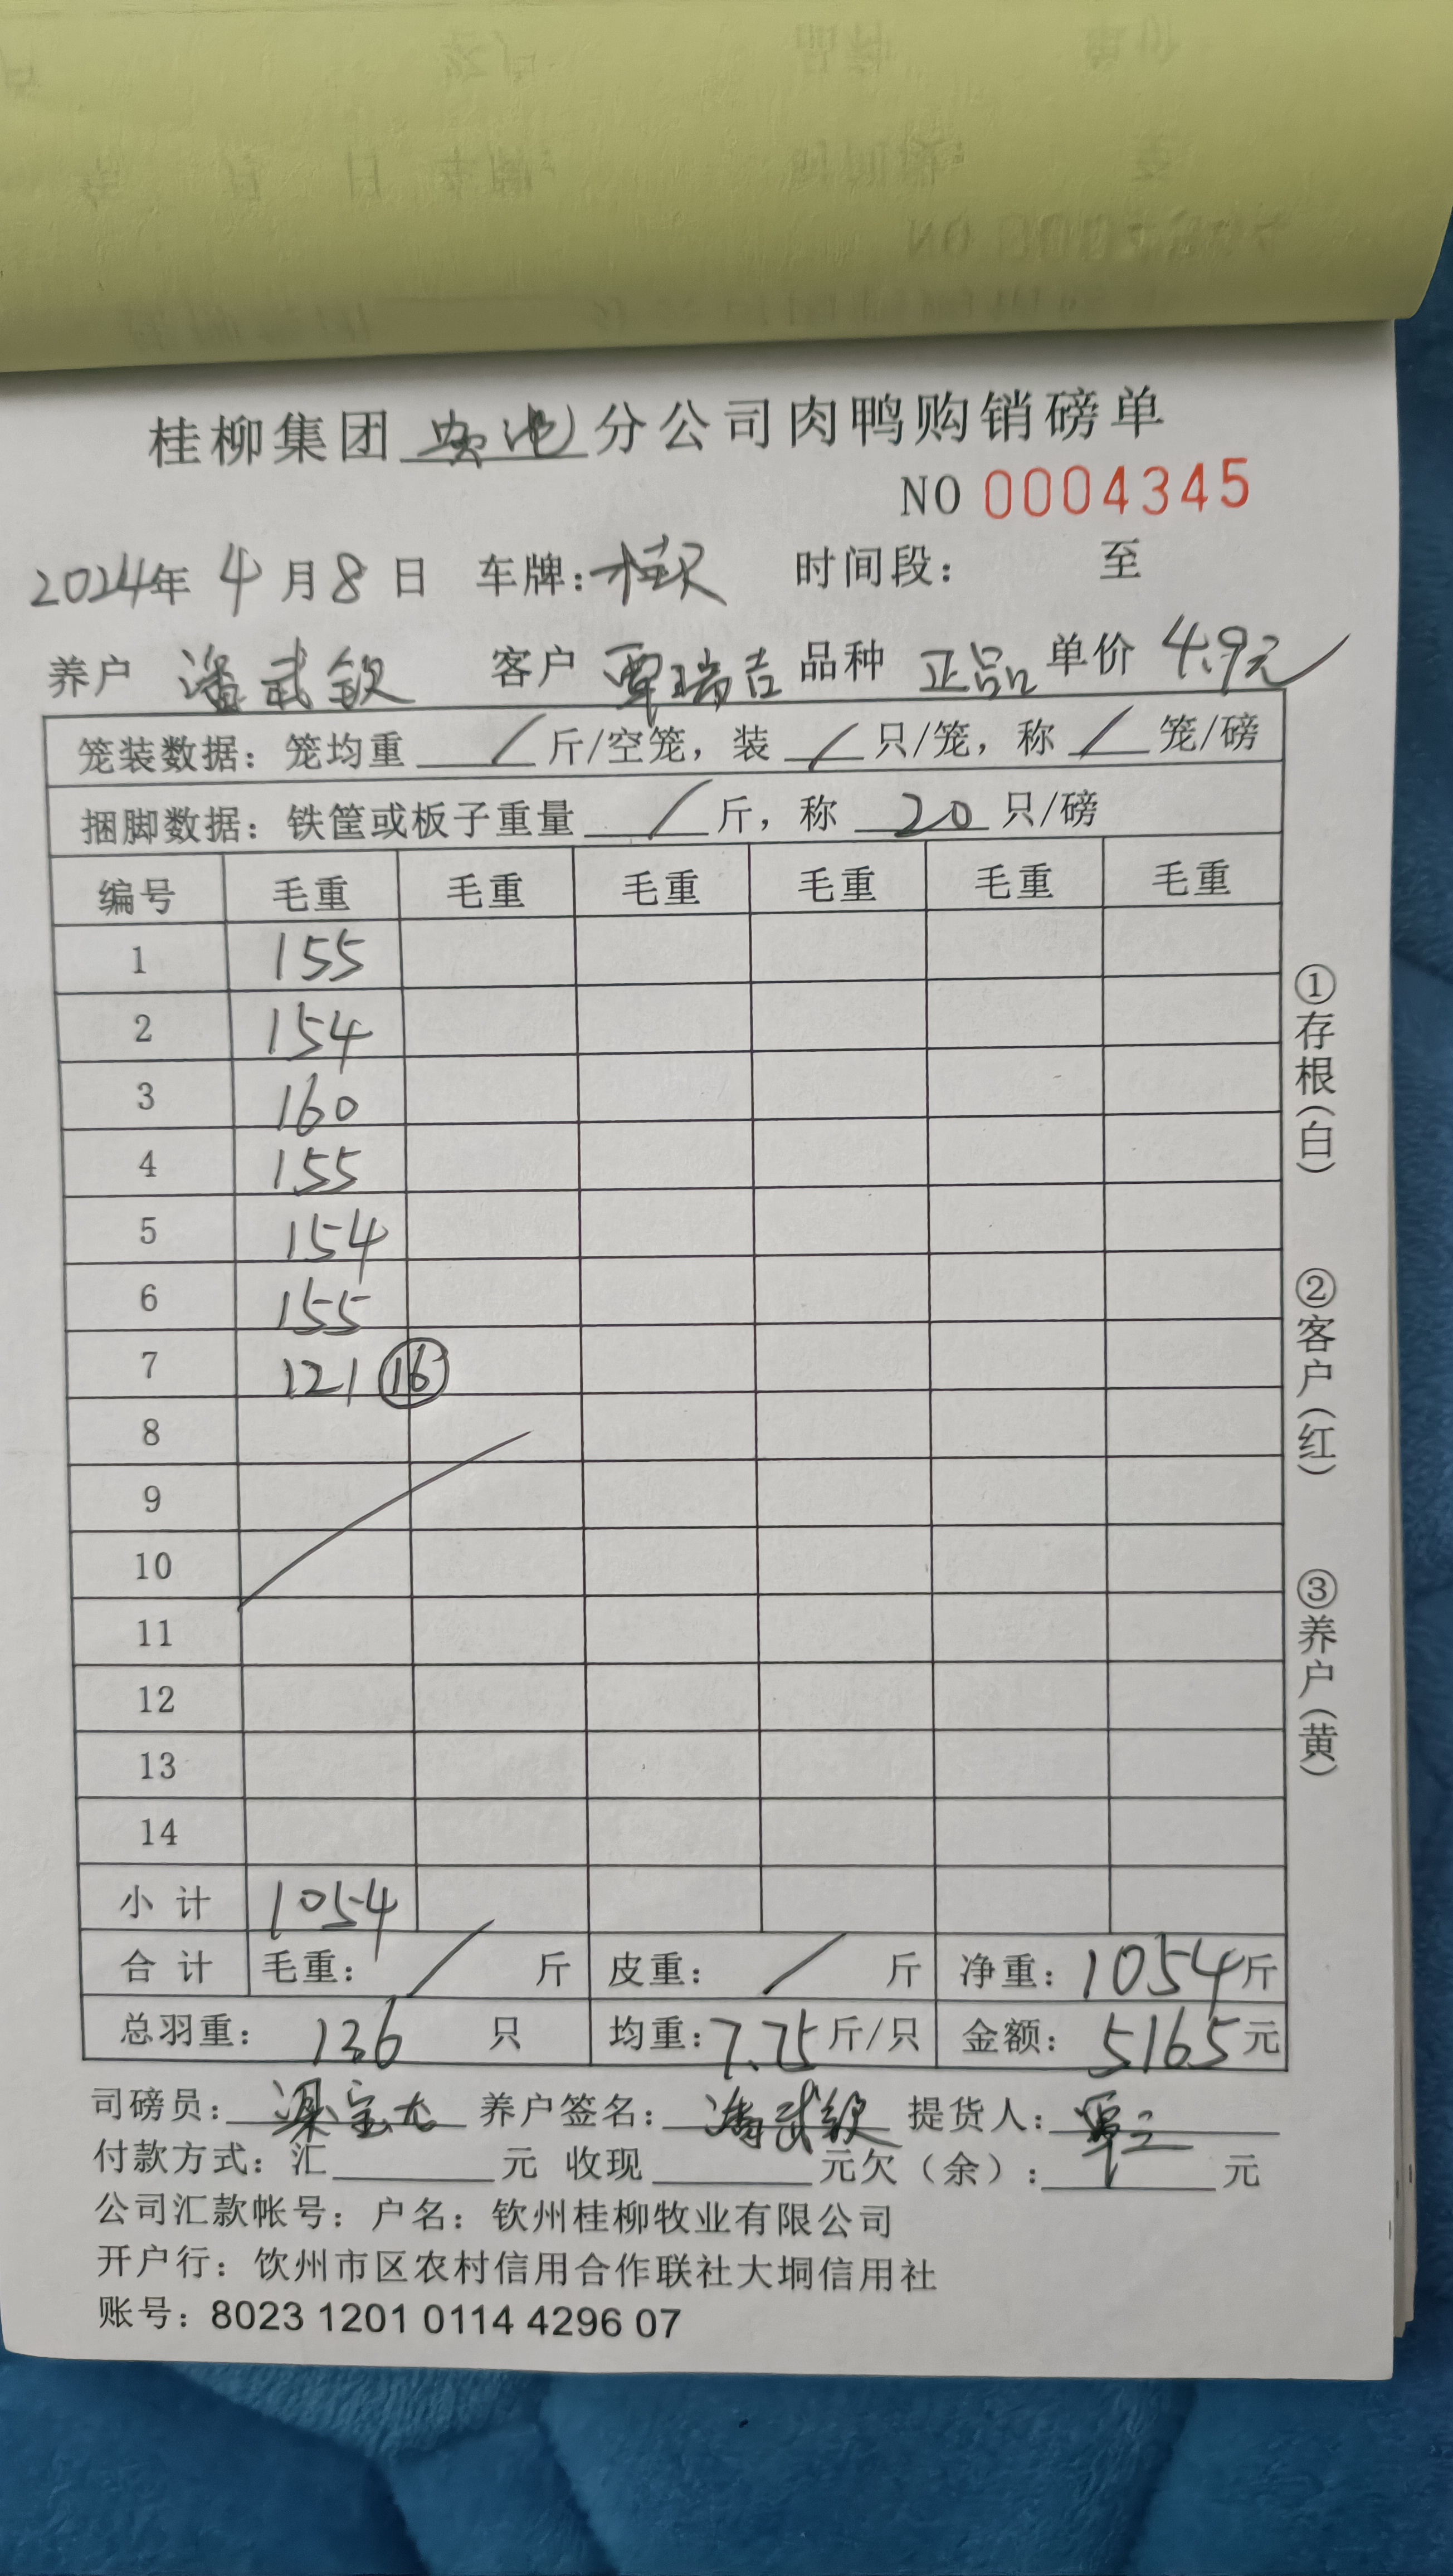 桂柳集团 分公司肉鸭购销磅单
NO 0004345
2024年 4月8日 车牌: 时间段: 至
养户 潘武钦 客户 覃瑞吉 品种 正品 单价 4.9元
笼装数据: 笼均重 / 斤/空笼, 装 / 只/笼, 称 / 笼/磅
捆脚数据: 铁筐或板子重量 / 斤, 称 20 只/磅
编号 毛重 毛重 毛重 毛重 毛重 毛重
1 155
2 154
3 160
4 155
5 154
6 155
7 121 ⑯
8
9
10
11
12
13
14
小计 1054
合计 毛重: / 斤 皮重: / 斤 净重: 1054斤
总羽重: 136 只 均重: 7.75斤/只 金额: 5165元
司磅员: 养户签名: 潘武钦 提货人: 覃
付款方式: 汇 元 收现 元欠(余): 元
公司汇款帐号: 户名: 钦州桂柳牧业有限公司
开户行: 饮州市区农村信用合作联社大垌信用社
账号: 8023 1201 0114 4296 07
①存根(白)
②客户(红)
③养户(黄)